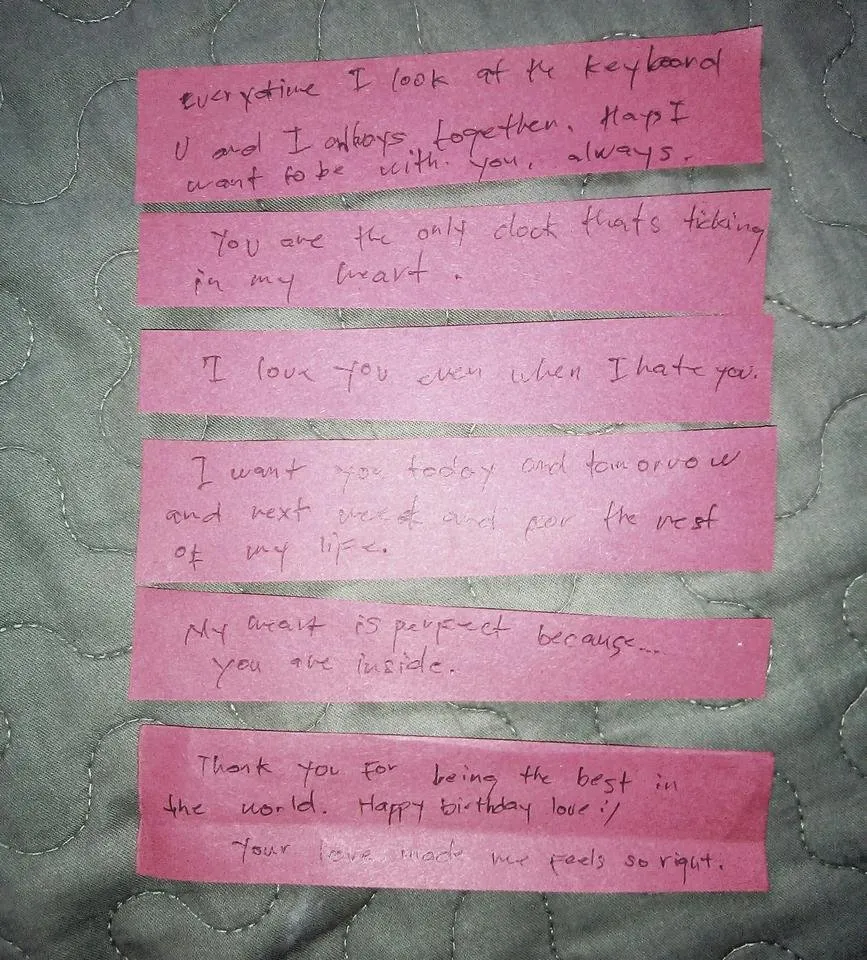 Everytime I look at the keyboard
U and I always together. Hays I
want to be with you, always.
You are the only clock thats ticking
in my heart.
I love you even when I hate you.
I want you today and tomorrow
and next week and for the rest
of my life.
My heart is perfect because...
you are inside.
Thank you for being the best in
the world. Happy birthday love :)
Your love made me feels so right.